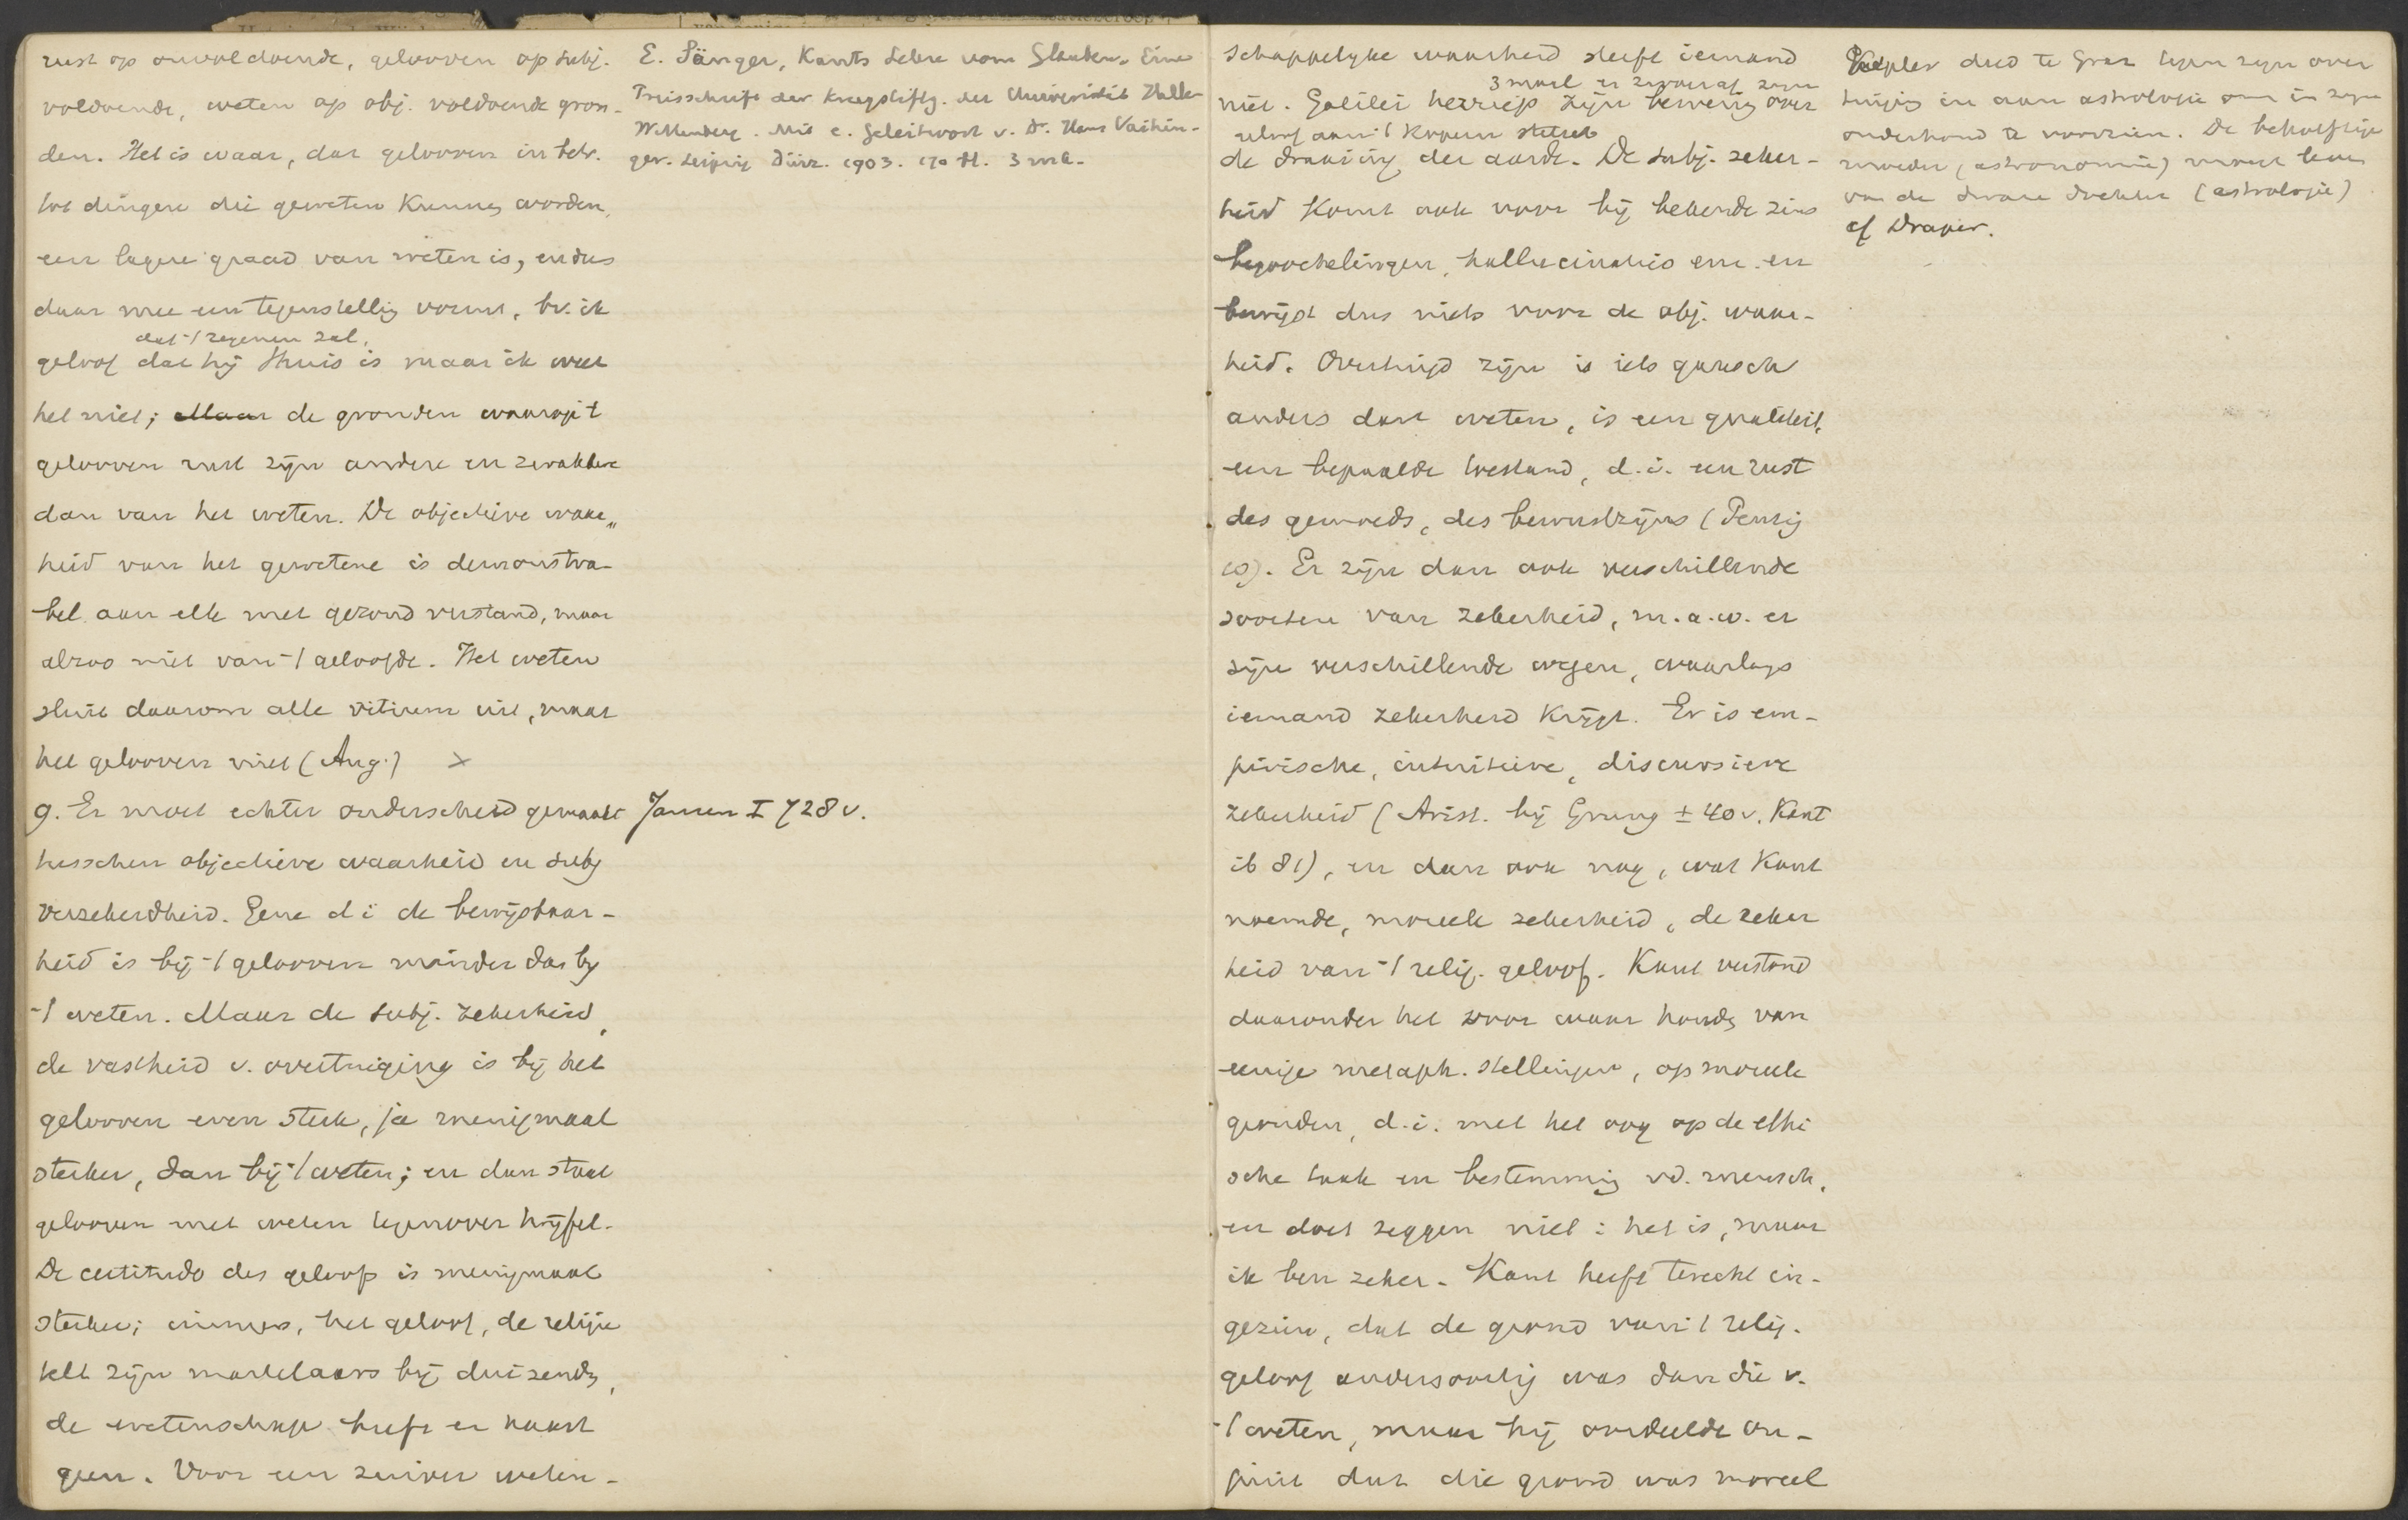 rust op onvoldoende, gelooven op subj.
voldoende, weten op obj. voldoende gron-
den. Het is waar, dat gelooven in betr.
tot dingen die geweten kunnen worden,
een lagere graad van weten is, en dus
daar mee een tegenstelling vormt, bv. ik
dat 't regenen zal,
geloof dat hij thuis is maar ik weet
het niet; Maar de gronden waarop 't
gelooven rust zijn andere en zwakkere
dan van het weten. De objectieve waar„
heid van het gewetene is demonstra-
bel aan elk met gezond verstand, maar
alzoo niet van 't geloofde. Het weten
sluit daarom alle vitium uit, maar
het gelooven niet (Aug.) ×
g. Er moet echter onderscheid gemaakt
tusschen objectieve waarheid en subj
verzekerdheid. Eene d i de bewijsbaar-
heid is bij 't gelooven minder dan bij
't weten. Maar de subj. zekerheid,
de vastheid v. overtuiging is bij het
gelooven even sterk, ja menigmaal
sterker, dan bij 't weten; en dan staat
gelooven met weten tegenover twijfel.
De certitudo des geloofs is menigmaal
sterker; immers, het geloof, de religie
telt zijn martelaars bij duizenden,
de wetenschap heeft er haast
geen. Voor een zuiver weten-
E. Sänger, Kants Lehre vom Glauben. Eine
Preisschrift der Krugstiftg. der Universität Halle
Wittenberg. Mit e. Geleitwort v. Dr. Hans Vaihin-
ger. Leipzig Dürr. 1903. 170 S. 3 mk.
Jansen I 728 v.
schappelijke waarheid sterft iemand
3 maal en zwoer af zijn
niet. Galilei herriep zijn bewering over
geloof aan 't Kopern stelsel
de draaiing der aarde. De subj. zeker-
heid komt ook voor bij bekende zins
begoochelingen, hallucinaties enz. en
bewijst dus niets voor de obj. waar-
heid. Overtuigd zijn is iets gansch
anders dan weten, is een qualiteit,
een bepaalde toestand, d.i. een rust
des gemoeds, des bewustzijns (Pensig
10). Er zijn dan ook verschillende
soorten van zekerheid, m.a.w. er
zijn verschillende wegen, waarlangs
iemand zekerheid krijgt. Er is em-
pirische, intuitieve, discursieve
zekerheid (Arist. bij Grung ± 40 v. Kant
ib 81), en dan ook nog, wat Kant
noemde, moreele zekerheid, de zeker
heid van 't relig. geloof. Kant verstond
daaronder het voor waar houden van
eenige metaph. stellingen, op moreele
gronden, d.i. met het oog op de ethi
sche taak en bestemming v.d. mensch,
en doet zeggen niet: het is, maar
ik ben zeker. Kant heeft terecht in-
gezien, dat de grond van 't relig.
geloof andersoortig was dan die v.
't weten, maar hij oordeelde on-
juist dat die grond was moreel
Kepler deed te Graz tegen zijn over
tuiging in aan astrologie om in zijn
onderhoud te voorzien. De behoeftige
moeder (astronomie) moest leven
van de dwaze dochter (astrologie)
cf Draper.